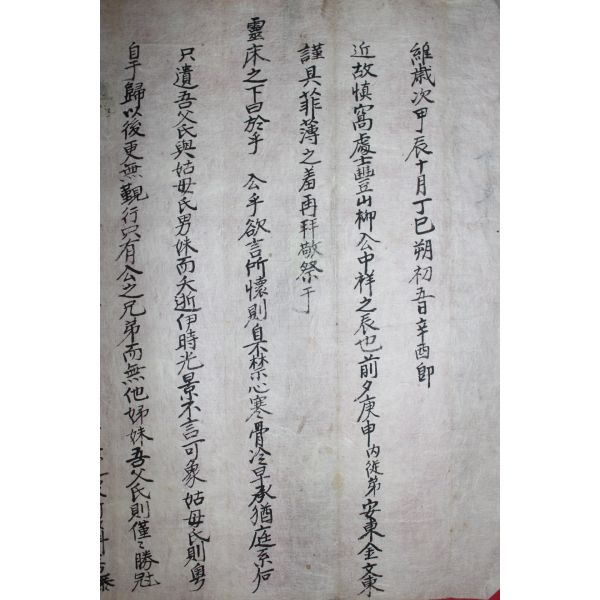 維歲次甲辰十月丁巳朔初五日辛酉卽
近故愼窩處士豐山柳公中祥之辰也前夕庚申內從弟安東金文東
謹具菲薄之羞再拜敬祭于
靈床之下曰於乎 公乎欲言所懷則自不禁心寒骨冷早承猶庭系
只遺吾父氏與姑母氏男妹而夭逝伊時光景不言可象姑母氏則粤
自于歸以後更無覲行只有公之兄弟而無他姊妹吾父氏則僅〻勝冠